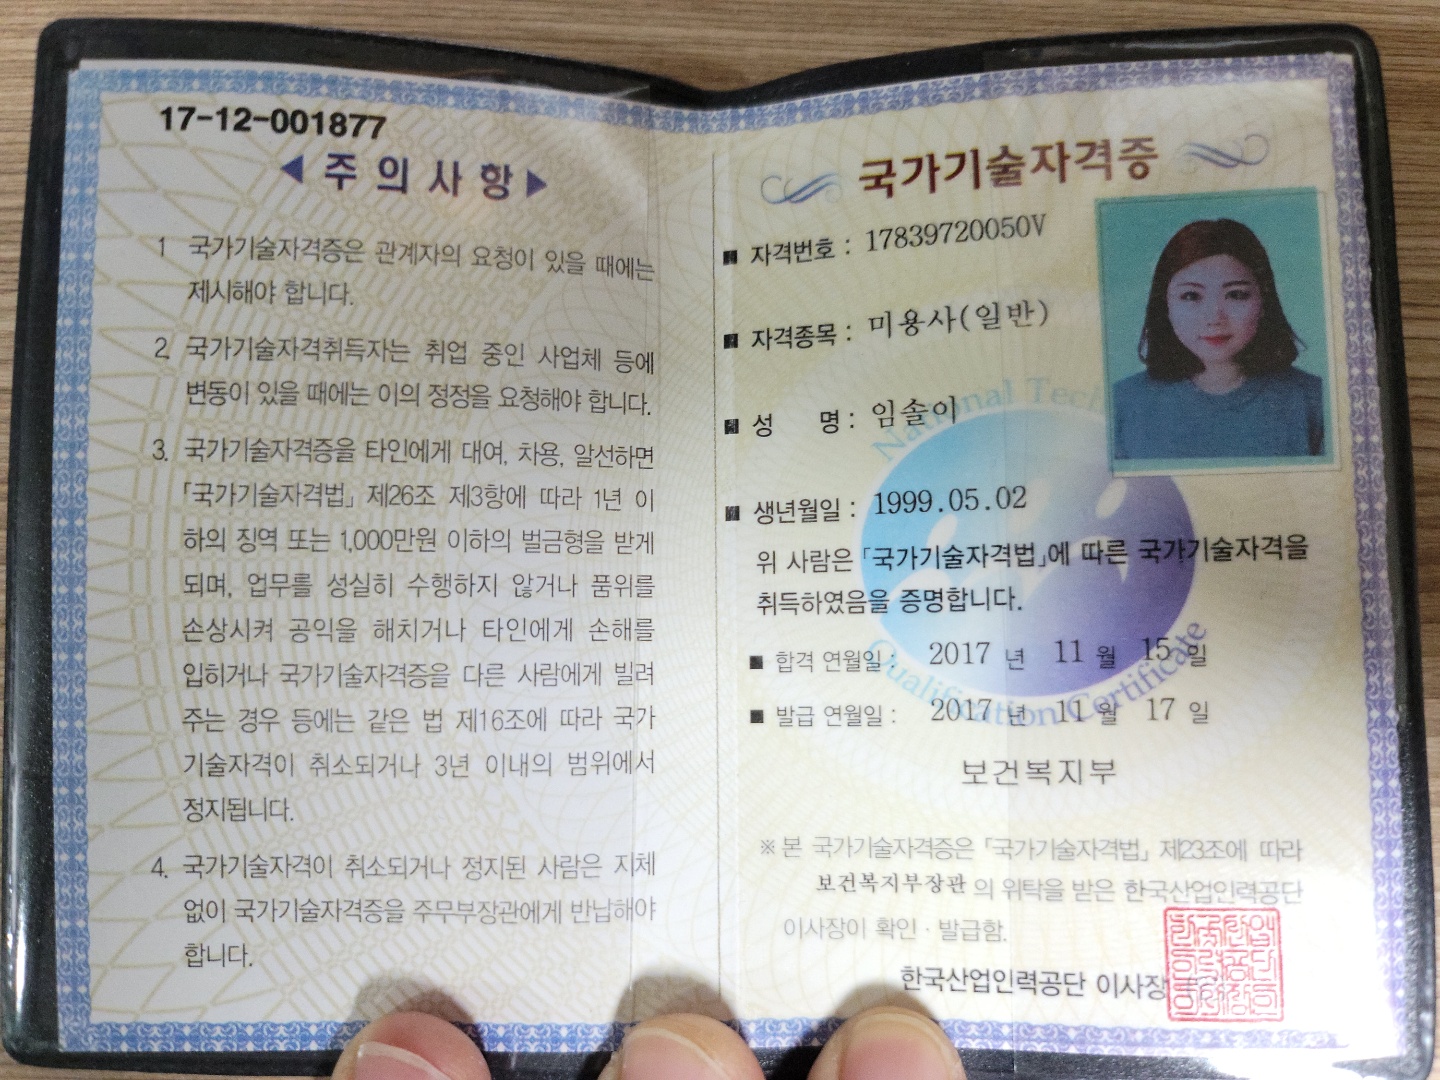 17-12-001877
◀ 주 의 사 항 ▶
1 국가기술자격증은 관계자의 요청이 있을 때에는
제시해야 합니다.
2. 국가기술자격취득자는 취업 중인 사업체 등에
변동이 있을 때에는 이의 정정을 요청해야 합니다.
3. 국가기술자격증을 타인에게 대여, 차용, 알선하면
「국가기술자격법」 제26조 제3항에 따라 1년 이
하의 징역 또는 1,000만원 이하의 벌금형을 받게
되며, 업무를 성실히 수행하지 않거나 품위를
손상시켜 공익을 해치거나 타인에게 손해를
입히거나 국가기술자격증을 다른 사람에게 빌려
주는 경우 등에는 같은 법 제16조에 따라 국가
기술자격이 취소되거나 3년 이내의 범위에서
정지됩니다.
4. 국가기술자격이 취소되거나 정지된 사람은 지체
없이 국가기술자격증을 주무부장관에게 반납해야
합니다.
국가기술자격증
■ 자격번호 : 17839720050V
■ 자격종목 : 미용사(일반)
■ 성 명 : 임솔이
■ 생년월일 : 1999.05.02
위 사람은 「국가기술자격법」에 따른 국가기술자격을
취득하였음을 증명합니다.
■ 합격 연월일 : 2017 년 11 월 15 일
■ 발급 연월일 : 2017 년 11 월 17 일
보건복지부
※ 본 국가기술자격증은 「국가기술자격법」 제23조에 따라
보건복지부장관 의 위탁을 받은 한국산업인력공단
이사장이 확인 · 발급함.
한국산업인력공단 이사장
National Tech
Qualification Certificate